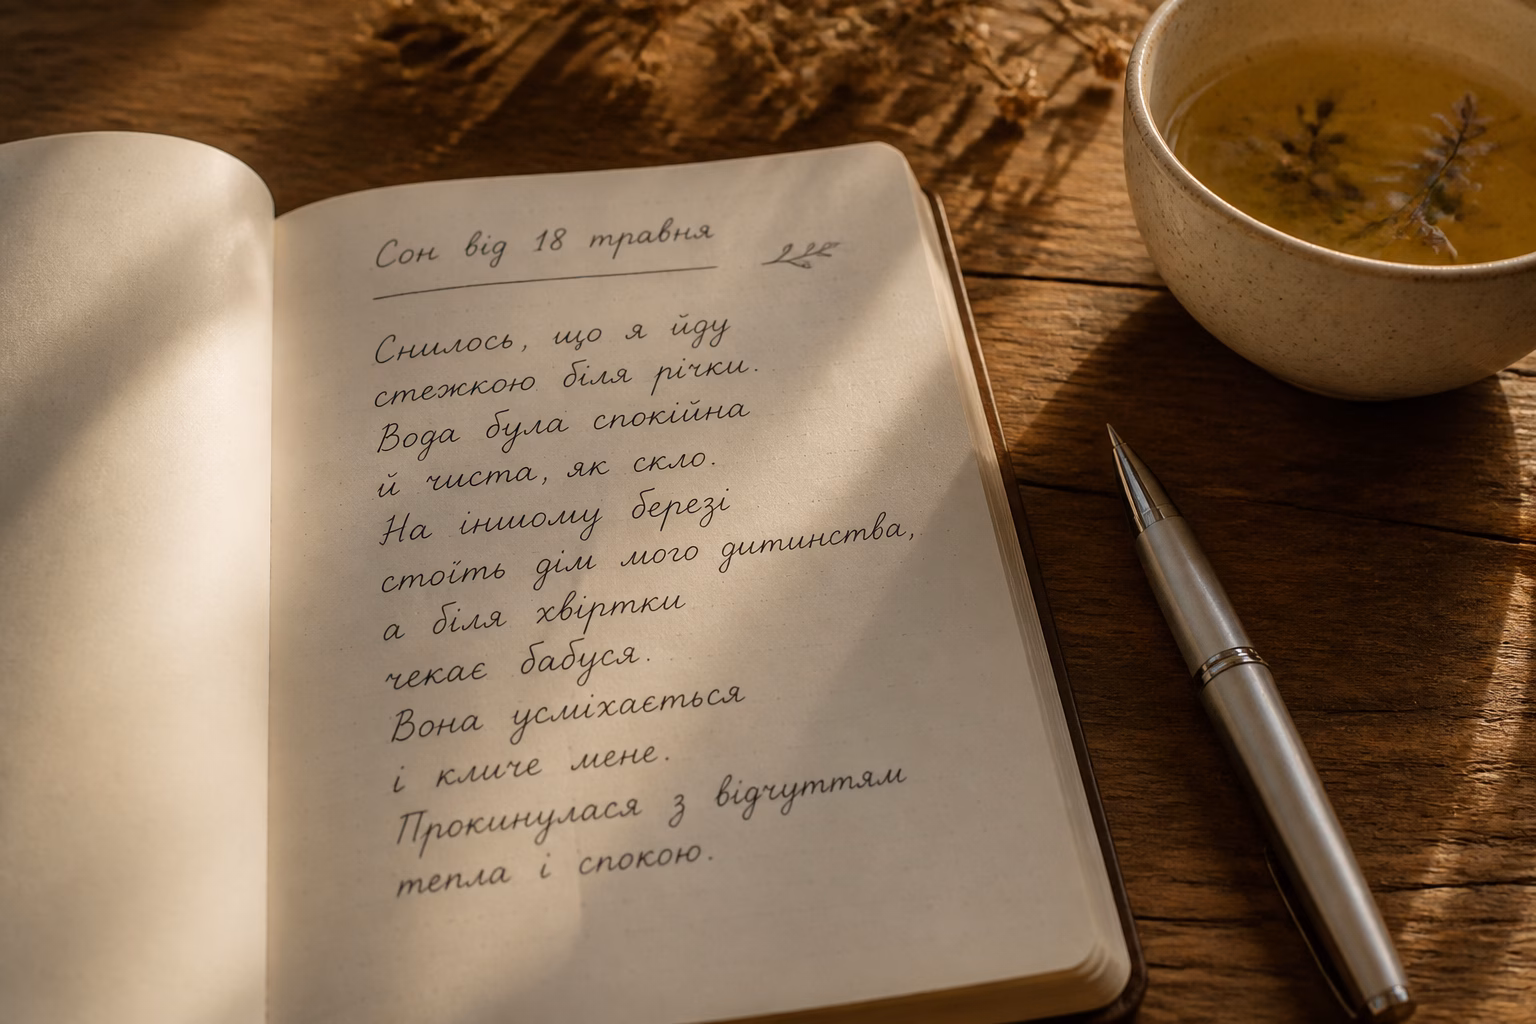 Сон від 18 травня
Снилось, що я йду
стежкою біля річки.
Вода була спокійна
й чиста, як скло.
На іншому березі
стоїть дім мого дитинства,
а біля хвіртки
чекає бабуся.
Вона усміхається
і кличе мене.
Прокинулася з відчуттям
тепла і спокою.